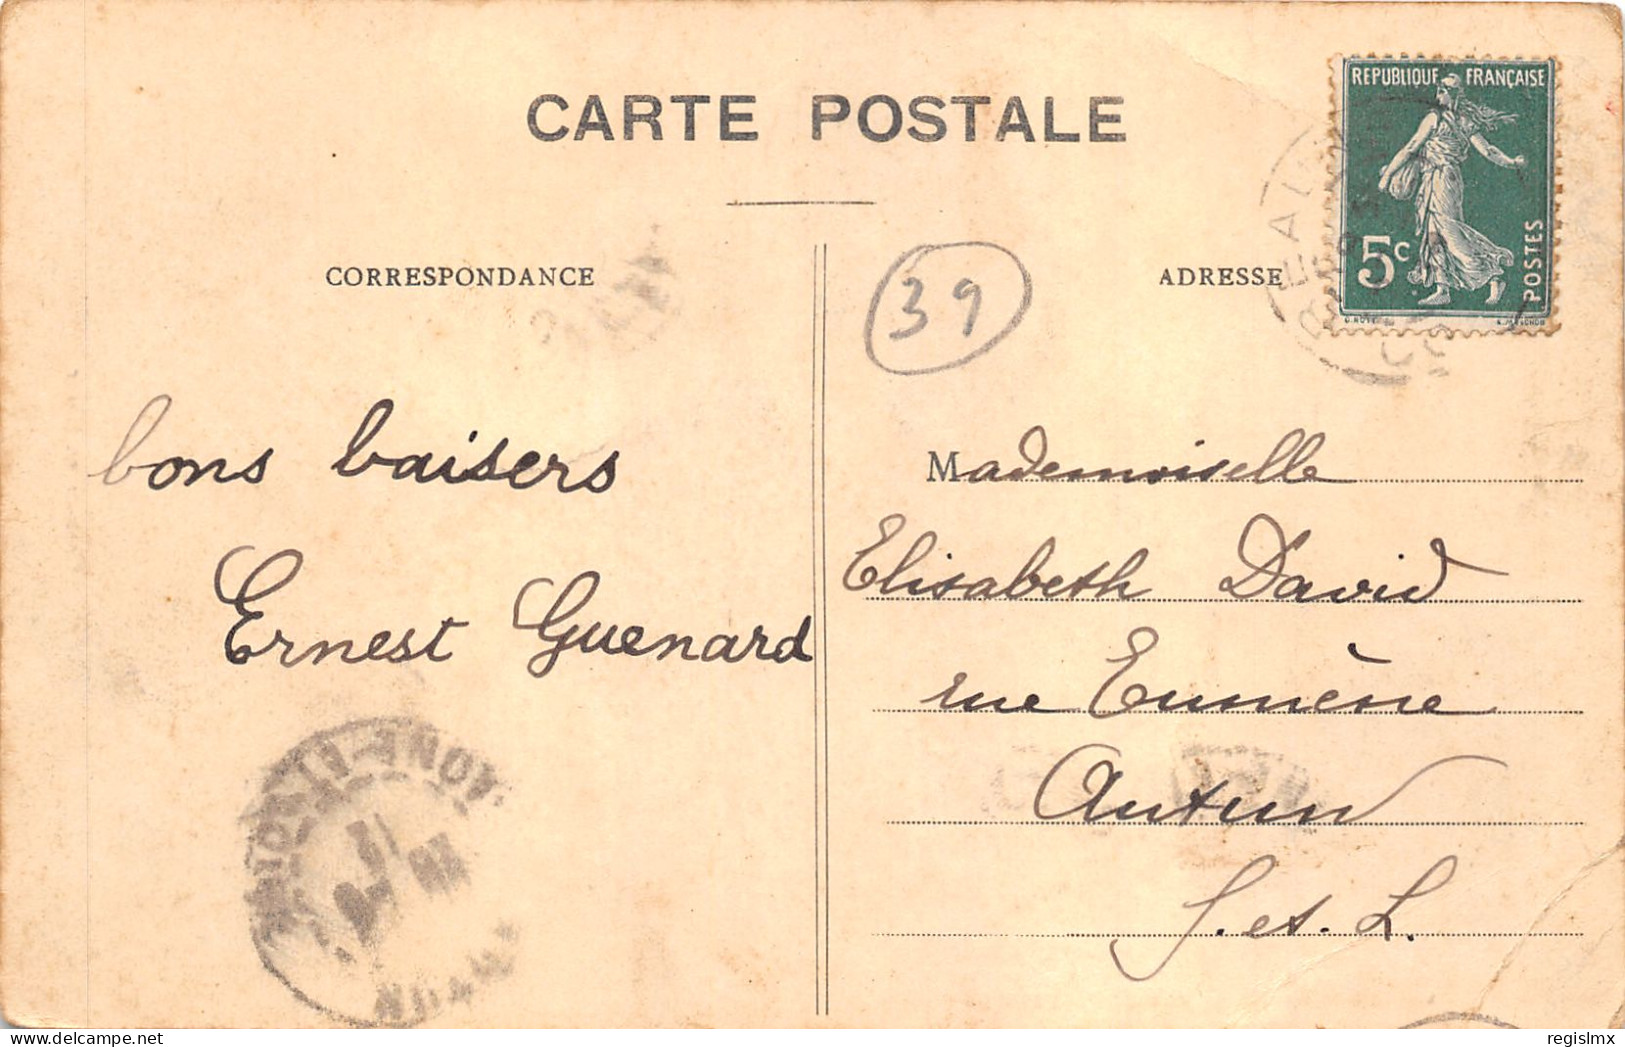 CARTE POSTALE
REPUBLIQUE FRANÇAISE
5c
POSTES
CORRESPONDANCE
39
ADRESSE
bons baisers
Ernest Guenard
Mademoiselle
Elisabeth David
rue Eumène
Autun
S. et. L.
SAONE-ET-LOIRE
AUTUN
regislmx